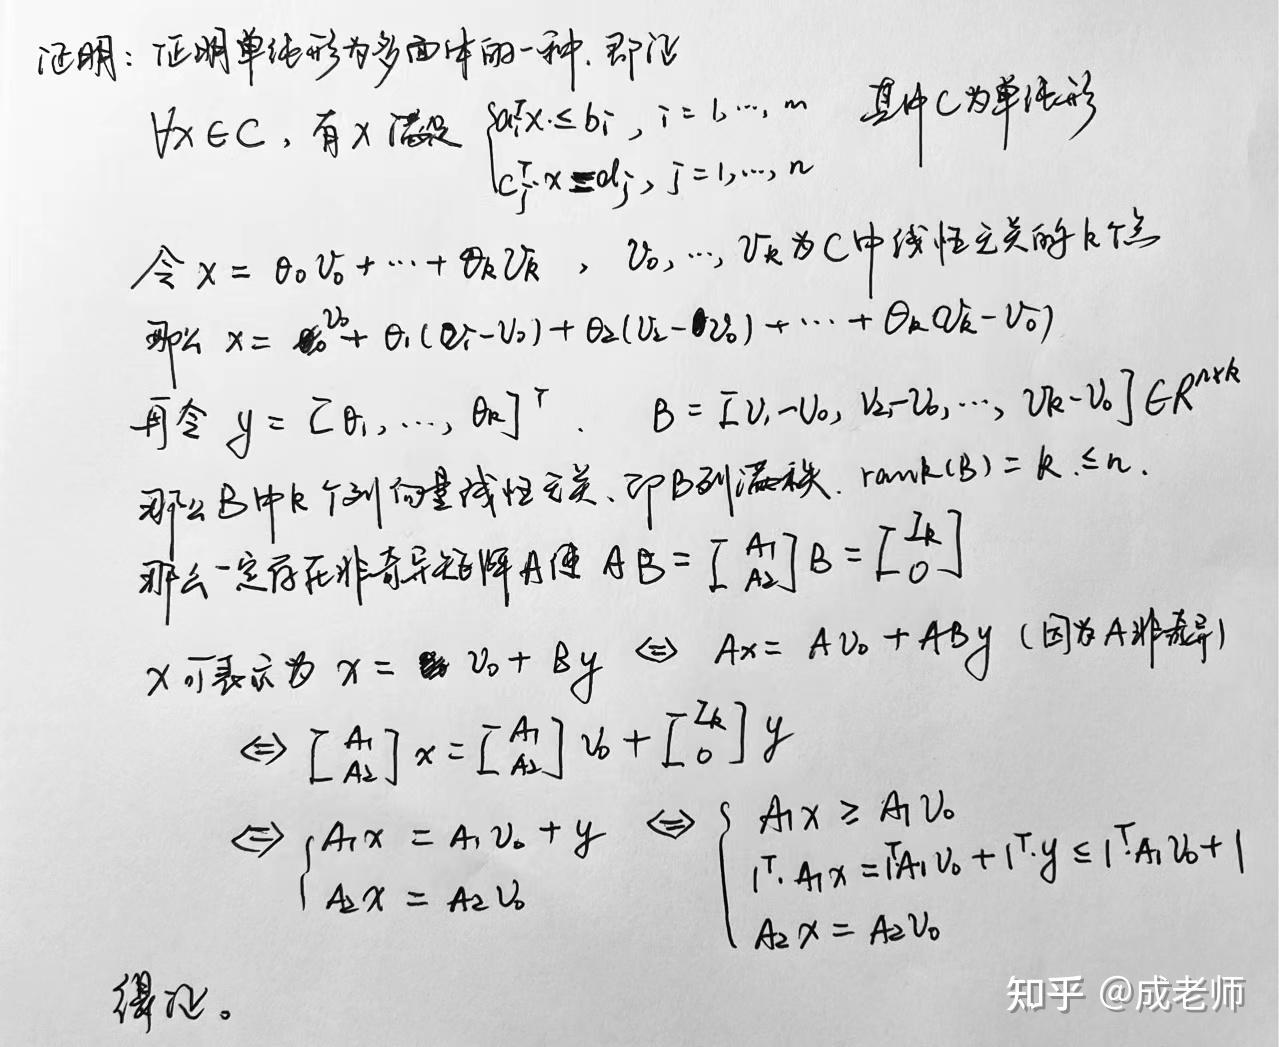 证明：证明单纯形为多面体的一种，即证
∀x∈C，有x满足 { aᵢᵀx ≤ bᵢ, i = 1, …, m 其中C为单纯形
cⱼᵀ·x = dⱼ, j = 1, …, n
令 x = θ₀v₀ + ⋯ + θₖvₖ ， v₀, …, vₖ为C中线性无关的k个点
那么 x = v₀ + θ₁(v₁-v₀) + θ₂(v₂-v₀) + ⋯ + θₖ(vₖ-v₀)
再令 y = [θ₁, …, θₖ]ᵀ. B = [v₁-v₀, v₂-v₀, …, vₖ-v₀] ∈ Rⁿˣᵏ
那么B中k个列向量线性无关、即B列满秩. rank(B) = k ≤ n.
那么一定存在非奇异矩阵A使 AB = [A₁ A₂] B = [Iₖ 0]
x可表示为 x = v₀ + By ⇔ Ax = Av₀ + ABy (因为A非奇异)
⇔ [A₁ A₂] x = [A₁ A₂] v₀ + [Iₖ 0] y
⇔ { A₁x = A₁v₀ + y ⇔ { A₁x ≥ A₁v₀
1ᵀ·A₁x = 1ᵀA₁v₀ + 1ᵀ·y ≤ 1ᵀ·A₁v₀ + 1
A₂x = A₂v₀ A₂x = A₂v₀
得证。
知乎 @成老师